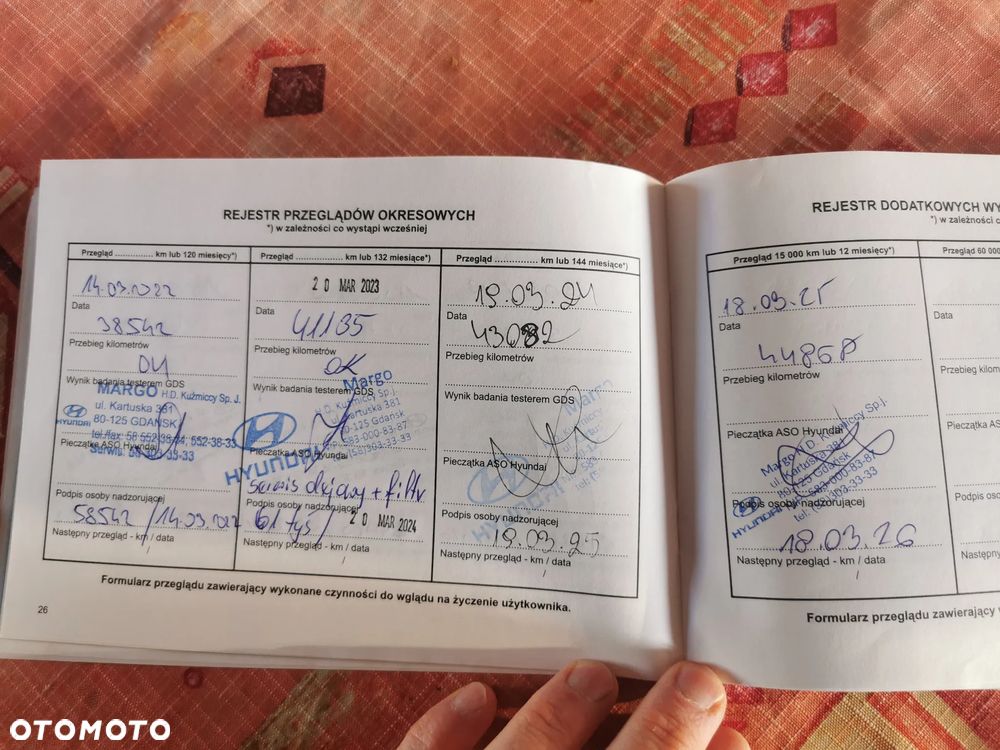 REJESTR PRZEGLĄDÓW OKRESOWYCH
*) w zależności co wystąpi wcześniej
Przegląd .............. km lub 120 miesięcy*)
14.03.2022
Data
38542
Przebieg kilometrów
OK
Wynik badania testerem GDS
MARGO H.D. Kuźmiccy Sp. J.
ul. Kartuska 381
80-125 GDAŃSK
HYUNDAI
tel./fax: 58 552-38-34, 552-38-33
Pieczątka ASO Hyundai
Serwis: 58 303-33-33
Podpis osoby nadzorującej
58542 / 14.03.2022
Następny przegląd - km / data
/
Przegląd .............. km lub 132 miesiące*)
20 MAR 2023
Data
41135
Przebieg kilometrów
OK
Wynik badania testerem GDS
Margo
H.D. Kuźmiccy Sp.j.
ul. Kartuska 381
80-125 Gdańsk
583-000-83-87
(58)303-33-33
HYUNDAI
Pieczątka ASO Hyundai
serwis olejowy + filtr
Podpis osoby nadzorującej
61 tyś / 20 MAR 2024
Następny przegląd - km / data
/
Przegląd .............. km lub 144 miesiące*)
19.03.24
Data
43082
Przebieg kilometrów
Wynik badania testerem GDS
Margo
HYUNDAI
Pieczątka ASO Hyundai
Podpis osoby nadzorującej
19.03.25
Następny przegląd - km / data
/
Formularz przeglądu zawierający wykonane czynności do wglądu na życzenie użytkownika.
26
REJESTR DODATKOWYCH WY
*) w zależności c
Przegląd 15 000 km lub 12 miesięcy*)
18.03.25
Data
44868
Przebieg kilometrów
Pieczątka ASO Hyundai
Margo H.D. Kuźmiccy Sp.j.
ul. Kartuska 381
80-125 Gdańsk
583-000-83-87
tel. (58)303-33-33
HYUNDAI
Podpis osoby nadzorującej
18.03.26
Następny przegląd - km / data
/
Przegląd 60 000
Data
Przebieg
Pieczątka
Podpis os
Następny
Formularz przeglądu zawierający w
OTOMOTO